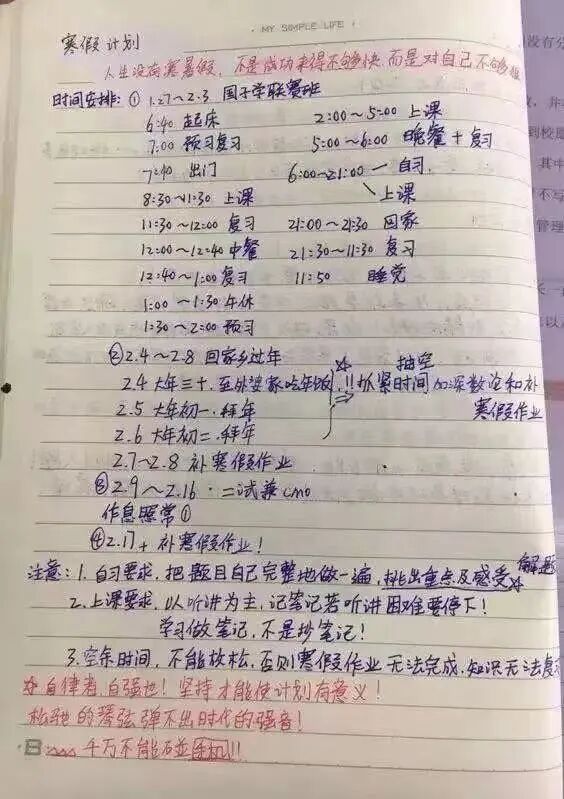 · MY SIMPLE LIFE ·
寒假计划
人生没有寒暑假，不是成功来得不够快而是对自己不够狠
时间安排：① 1.27～2.3 国子学联赛班
6:40 起床 2:00～5:00 上课
7:00 预习复习 5:00～6:00 晚餐＋复习
7:40 出门 6:00～21:00 — 自习
8:30～11:30 上课 上课
11:30～12:00 复习 21:00～21:30 回家
12:00～12:40 中餐 21:30～11:30 复习
12:40～1:00 复习 11:50 睡觉
1:00～1:30 午休
1:30～2:00 预习
② 2.4～2.8 回家乡过年 抽空
2.4 大年三十.至外婆家吃年饭 !! 抓紧时间加深数论和补
2.5 大年初一.拜年 寒假作业
2.6 大年初二.拜年
2.7～2.8 补寒假作业
③ 2.9～2.16 · 二试兼cmo
作息照常①
④ 2.17＋ 补寒假作业！
注意：1.自习要求，把题目自己完整地做一遍，挑出重点及感受 解题
2.上课要求，以听讲为主，记笔记若听讲困难要停下！
学习做笔记，不是抄笔记！
3.空余时间，不能放松，否则寒假作业无法完成，知识无法复
☆自律者，自强也！坚持才能使计划有意义！
松弛的琴弦弹不出时代的强音！
千万不能碰手机!!!
没有分
到校愿
其中
不写
管理